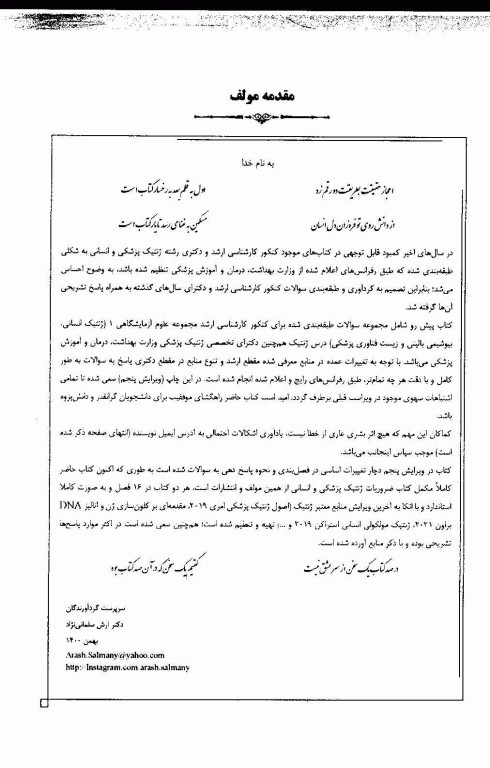 مقدمه مولف
به نام خدا
اعجاز حقیقت بطریقت دو رقم زد
اول به قلم بعد به رخسار کتاب است
از دانش روی تو فروزان دل انسان
مسکین به غنای رسد تا یار کتاب است
در سال‌های اخیر کمبود قابل توجهی در کتاب‌های موجود کنکور کارشناسی ارشد و دکتری رشته ژنتیک پزشکی و انسانی به شکلی
طبقه‌بندی شده که طبق رفرانس‌های اعلام شده از وزارت بهداشت، درمان و آموزش پزشکی تنظیم شده باشد، به وضوح احساس
می‌شد؛ بنابراین تصمیم به گردآوری و طبقه‌بندی سوالات کنکور کارشناسی ارشد و دکترای سال‌های گذشته به همراه پاسخ تشریحی
آن‌ها گرفته شد.
کتاب پیش رو شامل مجموعه سوالات طبقه‌بندی شده برای کنکور کارشناسی ارشد مجموعه علوم آزمایشگاهی ۱ (ژنتیک انسانی،
بیوشیمی بالینی و زیست فناوری پزشکی) درس ژنتیک هم‌چنین دکترای تخصصی ژنتیک پزشکی وزارت بهداشت، درمان و آموزش
پزشکی می‌باشد. با توجه به تغییرات عمده در منابع معرفی شده مقطع ارشد و تنوع منابع در مقطع دکتری پاسخ به سوالات به طور
کامل و با دقت هر چه تمام‌تر، طبق رفرانس‌های رایج و اعلام شده انجام شده است. در این چاپ (ویرایش پنجم) سعی شده تا تمامی
اشتباهات سهوی موجود در ویراست قبلی برطرف گردد. امید است کتاب حاضر راهگشای موفقیت برای دانشجویان گرانقدر و دانش‌پژوه
باشد.
کماکان این مهم که هیچ اثر بشری عاری از خطا نیست، یادآوری اشکالات احتمالی به آدرس ایمیل نویسنده (انتهای صفحه ذکر شده
است) موجب سپاس اینجانب می‌باشد.
کتاب در ویرایش پنجم دچار تغییرات اساسی در فصل‌بندی و نحوه پاسخ دهی به سوالات شده است به طوری که اکنون کتاب حاضر
کاملاً مکمل کتاب ضروریات ژنتیک پزشکی و انسانی از همین مولف و انتشارات است. هر دو کتاب در ۱۶ فصل و به صورت کاملا
استاندارد و با اتکا به آخرین ویرایش منابع معتبر ژنتیک (اصول ژنتیک پزشکی امری ۲۰۱۹، مقدمه‌ای بر کلون‌سازی ژن و آنالیز DNA
براون ۲۰۲۱، ژنتیک مولکولی انسانی استراکن ۲۰۱۹ و ...) تهیه و تنظیم شده است؛ هم‌چنین سعی شده است در اکثر موارد پاسخ‌ها
تشریحی بوده و با ذکر منابع آورده شده است.
در صد کتاب یک سخن از سر عشق نیست
گفتیم یک سخن که در آن صد کتاب بود
سرپرست گردآورندگان
دکتر آرش سلمانی‌نژاد
بهمن ۱۴۰۰
Arash.Salmany@yahoo.com
http://Instagram.com arash.salmany